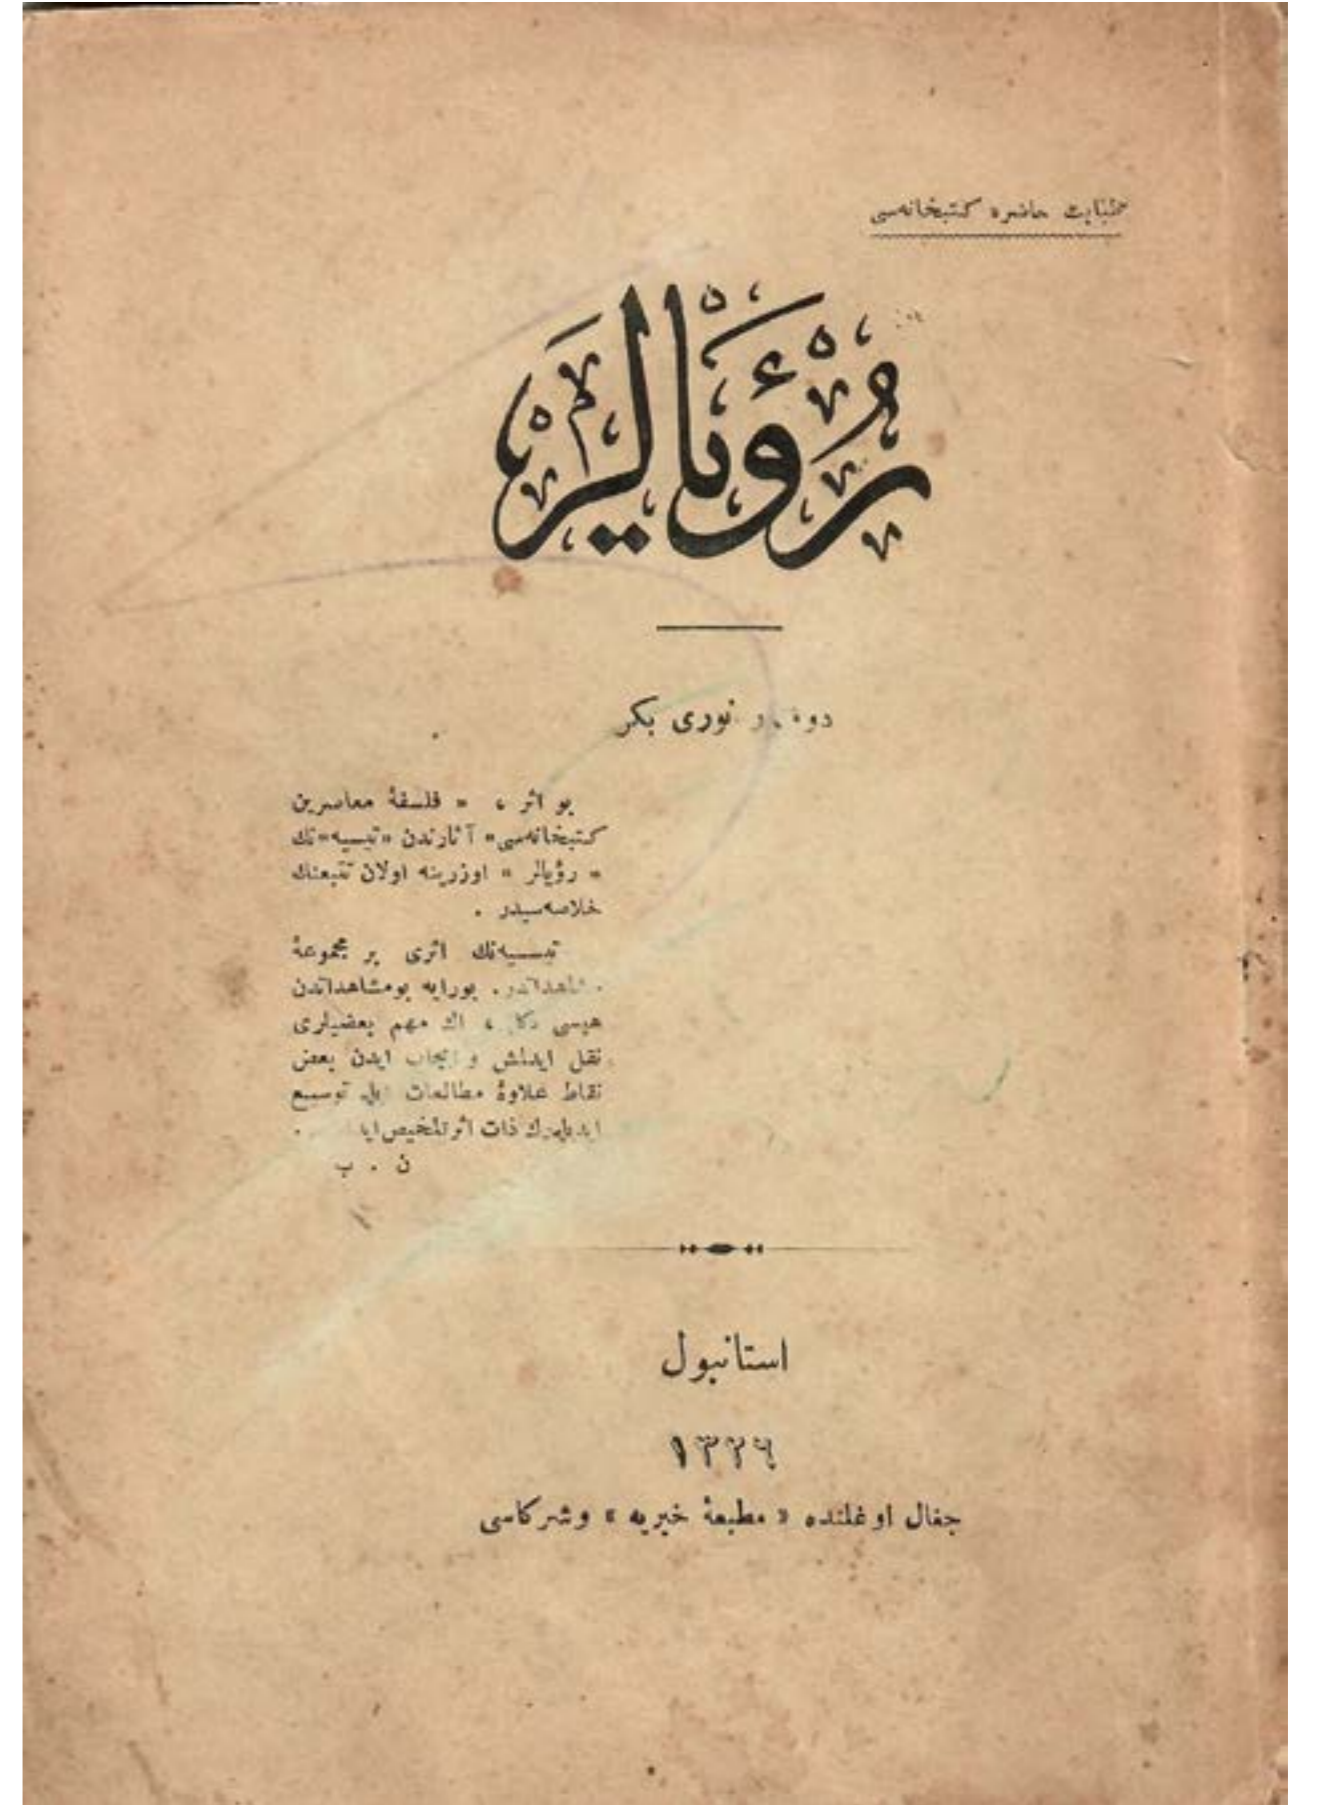 حاضره كتبخانه‌سی
رُؤْيَالَر
نوری بكر
بو اثر ، « فلسفۀ معاصرین
كتبخانه‌سی» آثارندن «تیسیه»نك
« رؤیالر » اوزرینه اولان تتبعنك
خلاصه‌سیدر .
تیسیه‌نك اثری بر مجموعۀ
بورایه بومشاهداتدن
هپسی دكل ، اك مهم بعضیلری
نقل ایدلمش و ایجاب ایدن بعض
نقاط علاوۀ مطالعات ایله توسیع
ایدیله‌رك ذات اثر تلخیص
ن . ب
استانبول
١٣٢٦
جغال اوغلنده « مطبعۀ خیریه » وشركاسی